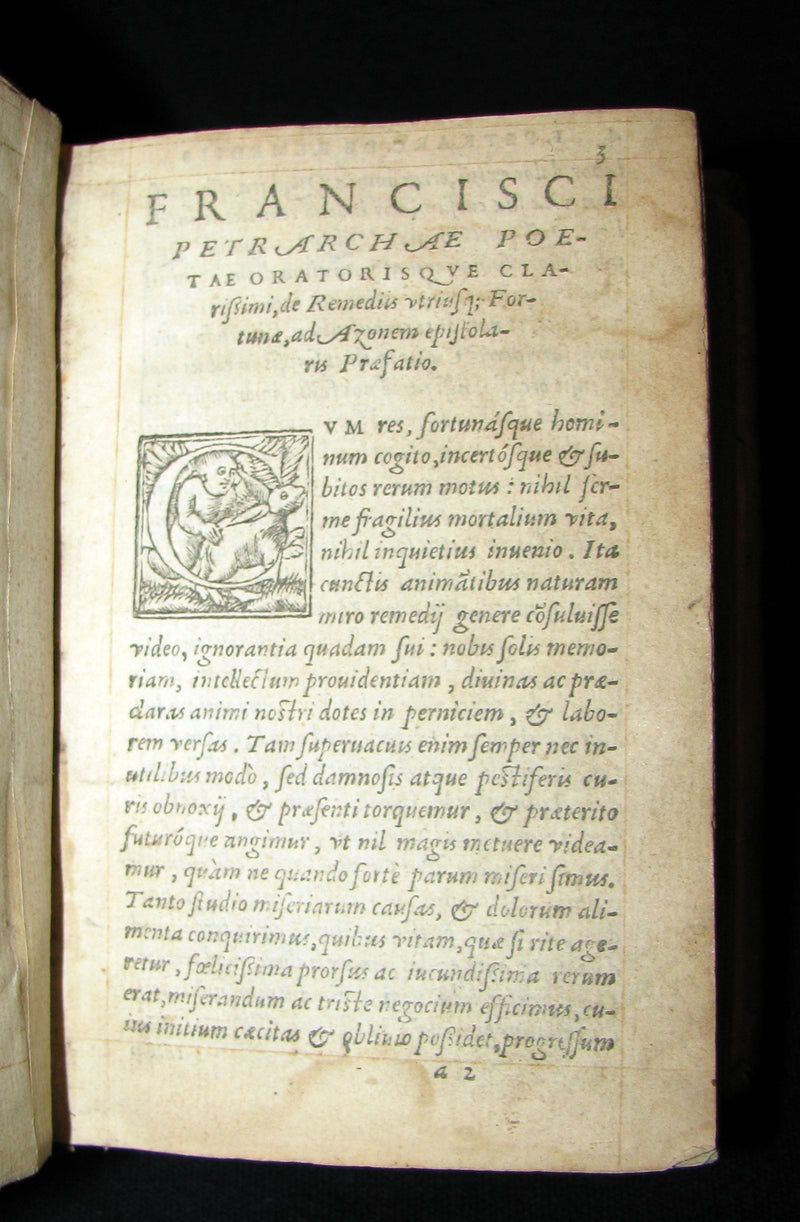 3
FRANCISCI
PETRARCHAE POE-
TAE ORATORISQVE CLA-
rißimi, de Remediis vtriusq; For-
tunæ, ad Azonem epistola-
ris Præfatio.
CVM res, fortunásque homi-
num cogito, incertósque & su-
bitos rerum motus : nihil fer-
me fragilius mortalium vita,
nihil inquietius inuenio. Ita
cunctis animãtibus naturam
miro remedij genere cõsuluisse
video, ignorantia quadam sui : nobis solis memo-
riam, intellectum prouidentiam, diuinas ac præ-
claras animi nostri dotes in perniciem, & labo-
rem versas. Tam superuacuis enim semper nec in-
utilibus modò, sed damnosis atque pestiferis cu-
ris obnoxij, & præsenti torquemur, & præterito
futuróque angimur, vt nil magis metuere videa-
mur, quàm ne quando fortè parum miseri simus.
Tanto studio miseriarum causas, & dolorum ali-
menta conquirimus, quibus vitam, quæ si rite age-
retur, fœlicißima prorsus ac iucundißima rerum
erat, miserandum ac triste negocium efficimus, cu-
ius initium cæcitas & obliuio poßidet, progressum
a 2